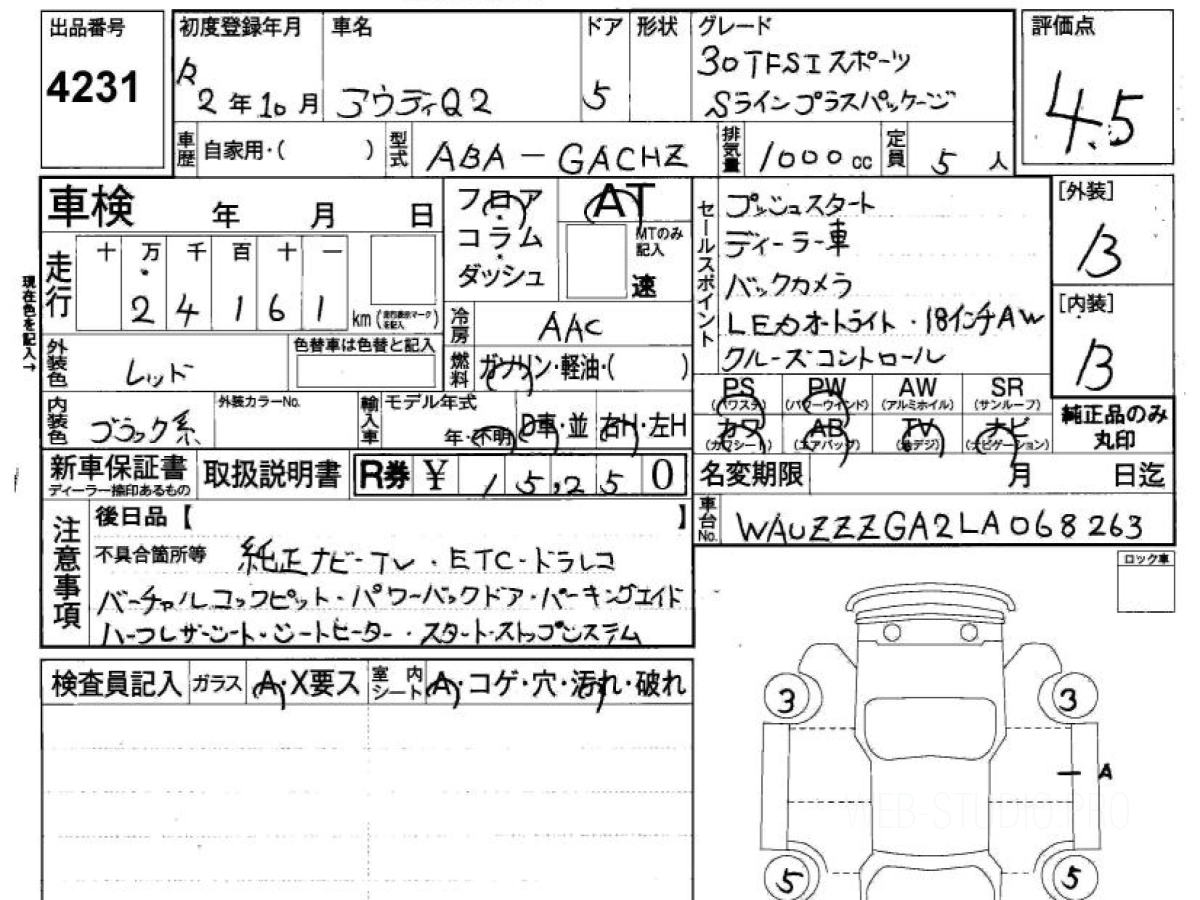 出品番号
4231
初度登録年月
R
2年10月
車名
アウディQ2
ドア
5
形状
グレード
30TFSIスポーツ
Sラインプラスパッケージ
評価点
4.5
車歴
自家用・( )
型式
ABA-GACHZ
排気量
1000cc
定員
5人
車検 年 月 日
走行
十 万 千 百 十 一
2 4 1 6 1
km
現在色を記入→
フロア
コラム
ダッシュ
AT
MTのみ記入
速
セールスポイント
プッシュスタート
ディーラー車
バックカメラ
LEDオートライト・18インチAW
クルーズコントロール
[外装]
B
[内装]
B
冷房
AAC
燃料
ガソリン・軽油・( )
外装色
レッド
色替車は色替と記入
内装色
ブラック系
外装カラーNo.
輸入車
モデル年式
年・不明
D車・並
右H・左H
PS (パワステ)
PW (パワーウインド)
AW (アルミホイル)
SR (サンルーフ)
カワ (カワシート)
AB (エアバッグ)
TV (地デジ)
ナビ (ナビゲーション)
純正品のみ
丸印
新車保証書
ディーラー捺印あるもの
取扱説明書
R券 ¥ 15,250
名変期限 月 日迄
車台No.
WAUZZZGA2LA068263
注意事項
後日品【 】
不具合箇所等
純正ナビ-TV・ETC-ドラレコ
バーチャルコックピット・パワーバックドア・パーキングエイド
ハーフレザーシート・シートヒーター・スタート・ストップシステム
ロック車
検査員記入
ガラス
A・X要ス
室内シート
A・コゲ・穴・汚れ・破れ
3
3
A
WEB-STUDIO.PRO
5
5